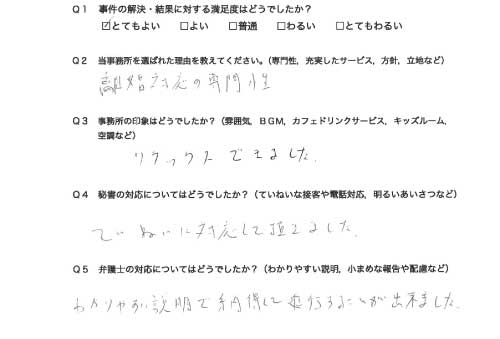 Q1 事件の解決・結果に対する満足度はどうでしたか？
☑とてもよい □よい □普通 □わるい □とてもわるい
Q2 当事務所を選ばれた理由を教えてください。（専門性，充実したサービス，方針，立地など）
離婚対応の専門性
Q3 事務所の印象はどうでしたか？（雰囲気，BGM，カフェドリンクサービス，キッズルーム，
空調など）
リラックスできました．
Q4 秘書の対応についてはどうでしたか？（ていねいな接客や電話対応，明るいあいさつなど）
ていねいに対応して頂きました．
Q5 弁護士の対応についてはどうでしたか？（わかりやすい説明，小まめな報告や配慮など）
わかりやすい説明で納得して進行することが出来ました．